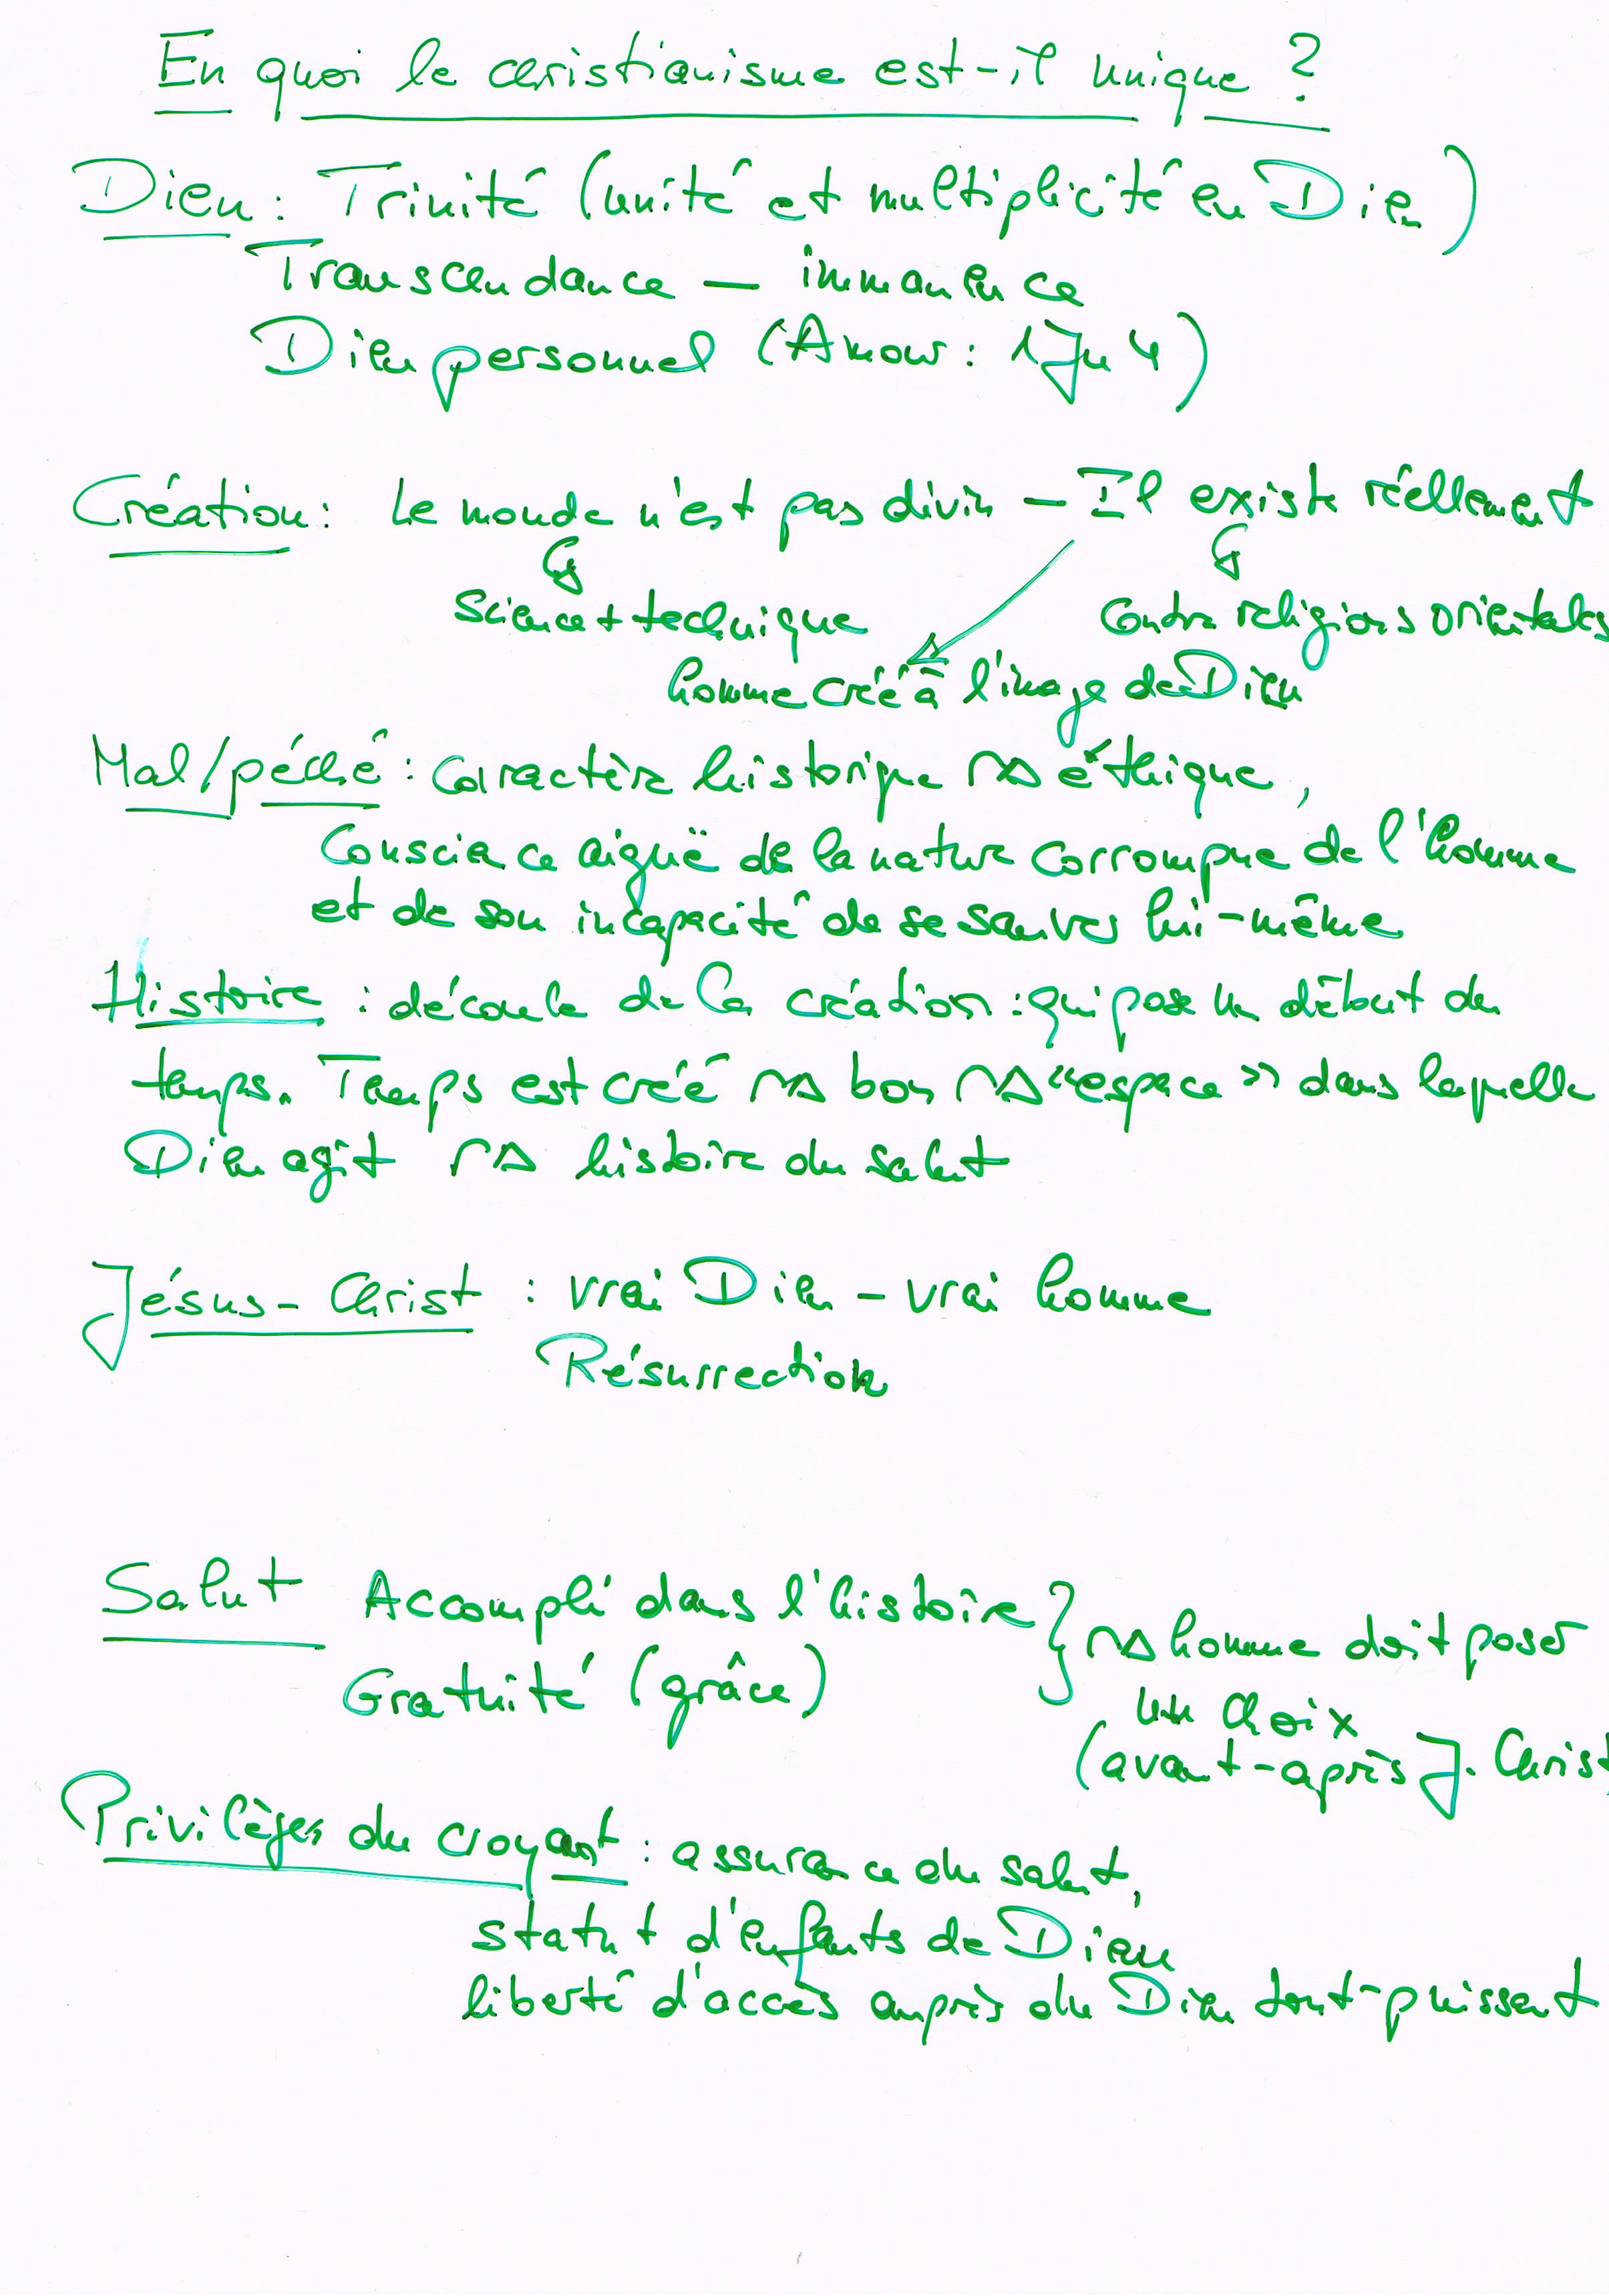 En quoi le christianisme est-il unique ?
Dieu : Trinité (unité et multiplicité en Dieu)
Transcendance — immanence
Dieu personnel (Amour : 1 Jn 4)
Création : Le monde n'est pas divin — Il existe réellement
Science + technique
contre religions orientales
homme créé à l'image de Dieu
Mal/péché : caractère historique → éthique,
conscience aiguë de la nature corrompue de l'homme
et de son incapacité de se sauver lui-même
Histoire : découle de la création : qui pose un début du
temps. Temps est créé → bon → « espace » dans laquelle
Dieu agit → histoire du salut
Jésus-Christ : vrai Dieu – vrai homme
Résurrection
Salut Accompli dans l'histoire } → homme doit poser
Gratuité (grâce)
un choix
(avant-après J. Christ
Privilèges du croyant : assurance du salut,
statut d'enfants de Dieu
liberté d'accès auprès du Dieu tout-puissant